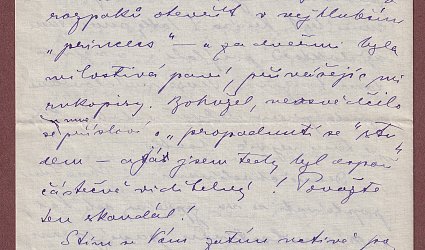 rozpaků otevříti v nejhlubším
„princess" — a za dveřmi byla
milostivá paní, přinášejíc mi
rukopisy. Bohužel, neosvědčilo
se mně přísloví o „propadnutí se "stu-
dem — a já jsem tedy byl aspoň
částečně viditelný! Považte
ten skandál!
S tím se Vám zatím